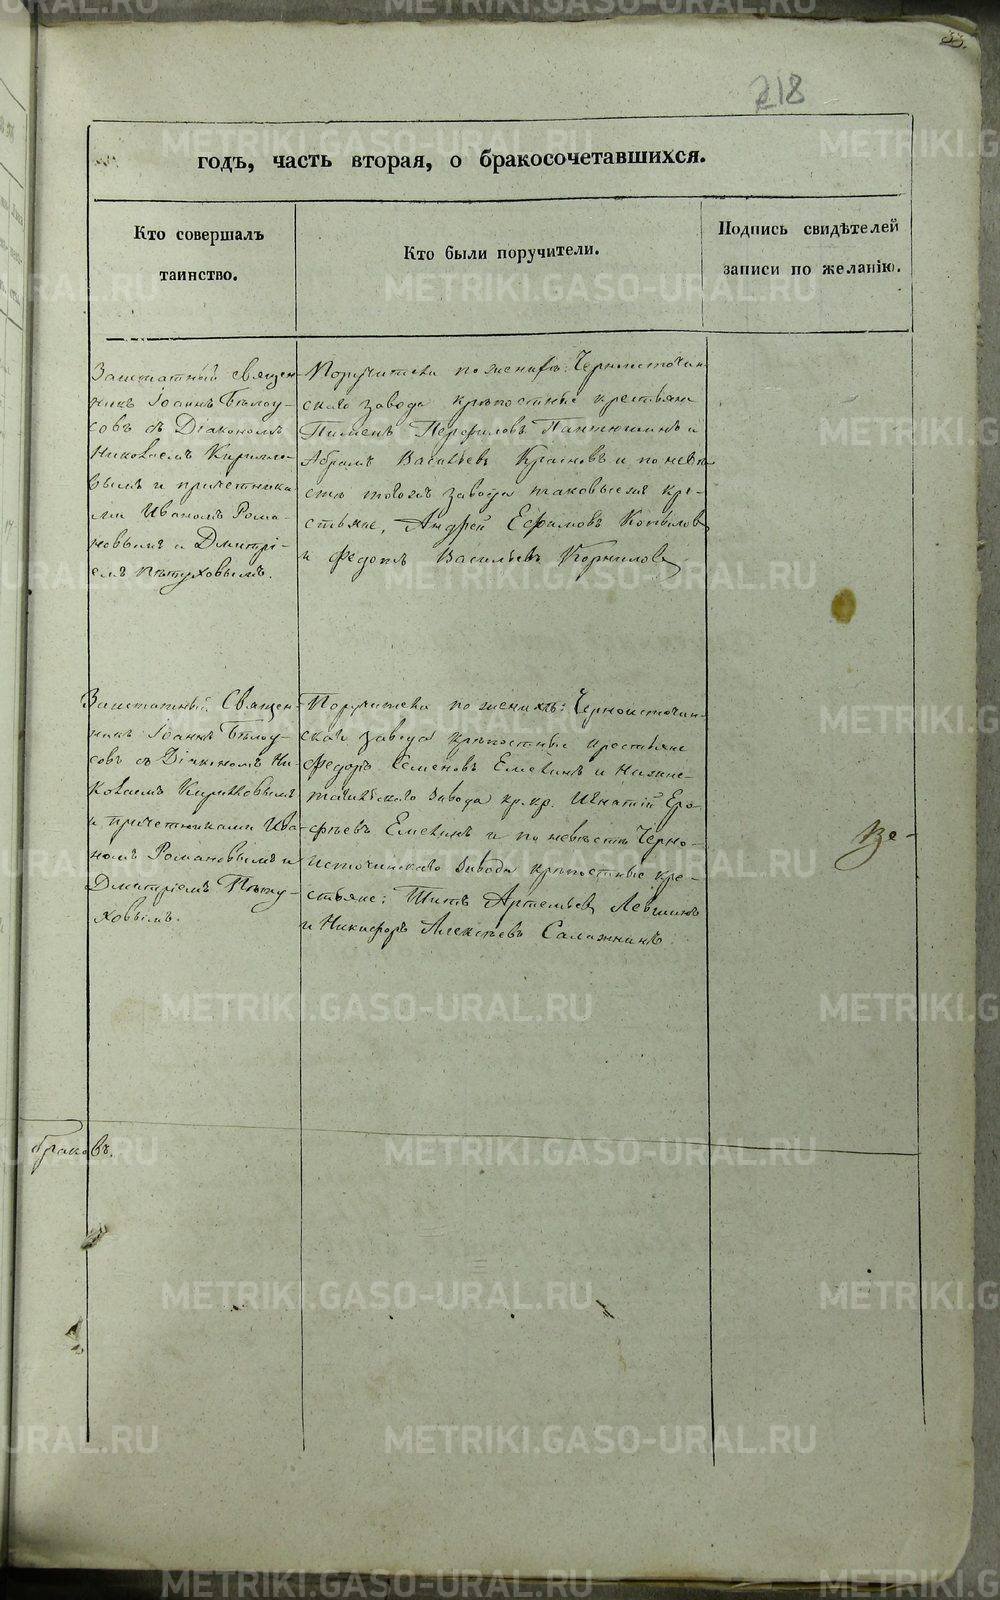 33.
218
годъ, часть вторая, о бракосочетавшихся.
Кто совершалъ
таинство.
Кто были поручители.
Подпись свидѣтелей
записи по желанію.
Заштатный священ-
никъ Іоаннъ Бѣлоу-
совъ съ Діакономъ
Николаемъ Кирилло-
вымъ и причетника
ми Иваномъ Рома-
новымъ и Дмитрі-
емъ Пѣтуховымъ.
Поручители по женихѣ: Черноисточин-
скаго завода крѣпостные крестьяне
Пименъ Перфиловъ Пантюшинъ и
Абрамъ Васильевъ Крановъ и по невѣ
стѣ тогожъ завода таковыежъ кре-
стьяне, Андрей Ефимовъ Копыловъ
и Федотъ Васильевъ Корниловъ
Заштатный Священ-
никъ Іоаннъ Бѣлоу-
совъ съ Діакономъ Ни-
колаемъ Кирилловымъ
и причетниками Ива
номъ Романовымъ и
Дмитріемъ Пѣту-
ховымъ.
Поручители по женихѣ: Черноисточин-
скаго завода крѣпостные крестьяне
Федоръ Семеновъ Емелинъ и Нижне-
тагильскаго завода кр. кр. Игнатій Еро-
фѣевъ Емелинъ и по невѣстѣ Черно-
источинскаго завода крѣпостные кре-
стьяне: Титъ Артемьевъ Левшинъ
и Никифоръ Алексѣевъ Саложнинъ.
Ве-
браковъ.
METRIKI.GASO-URAL.RU